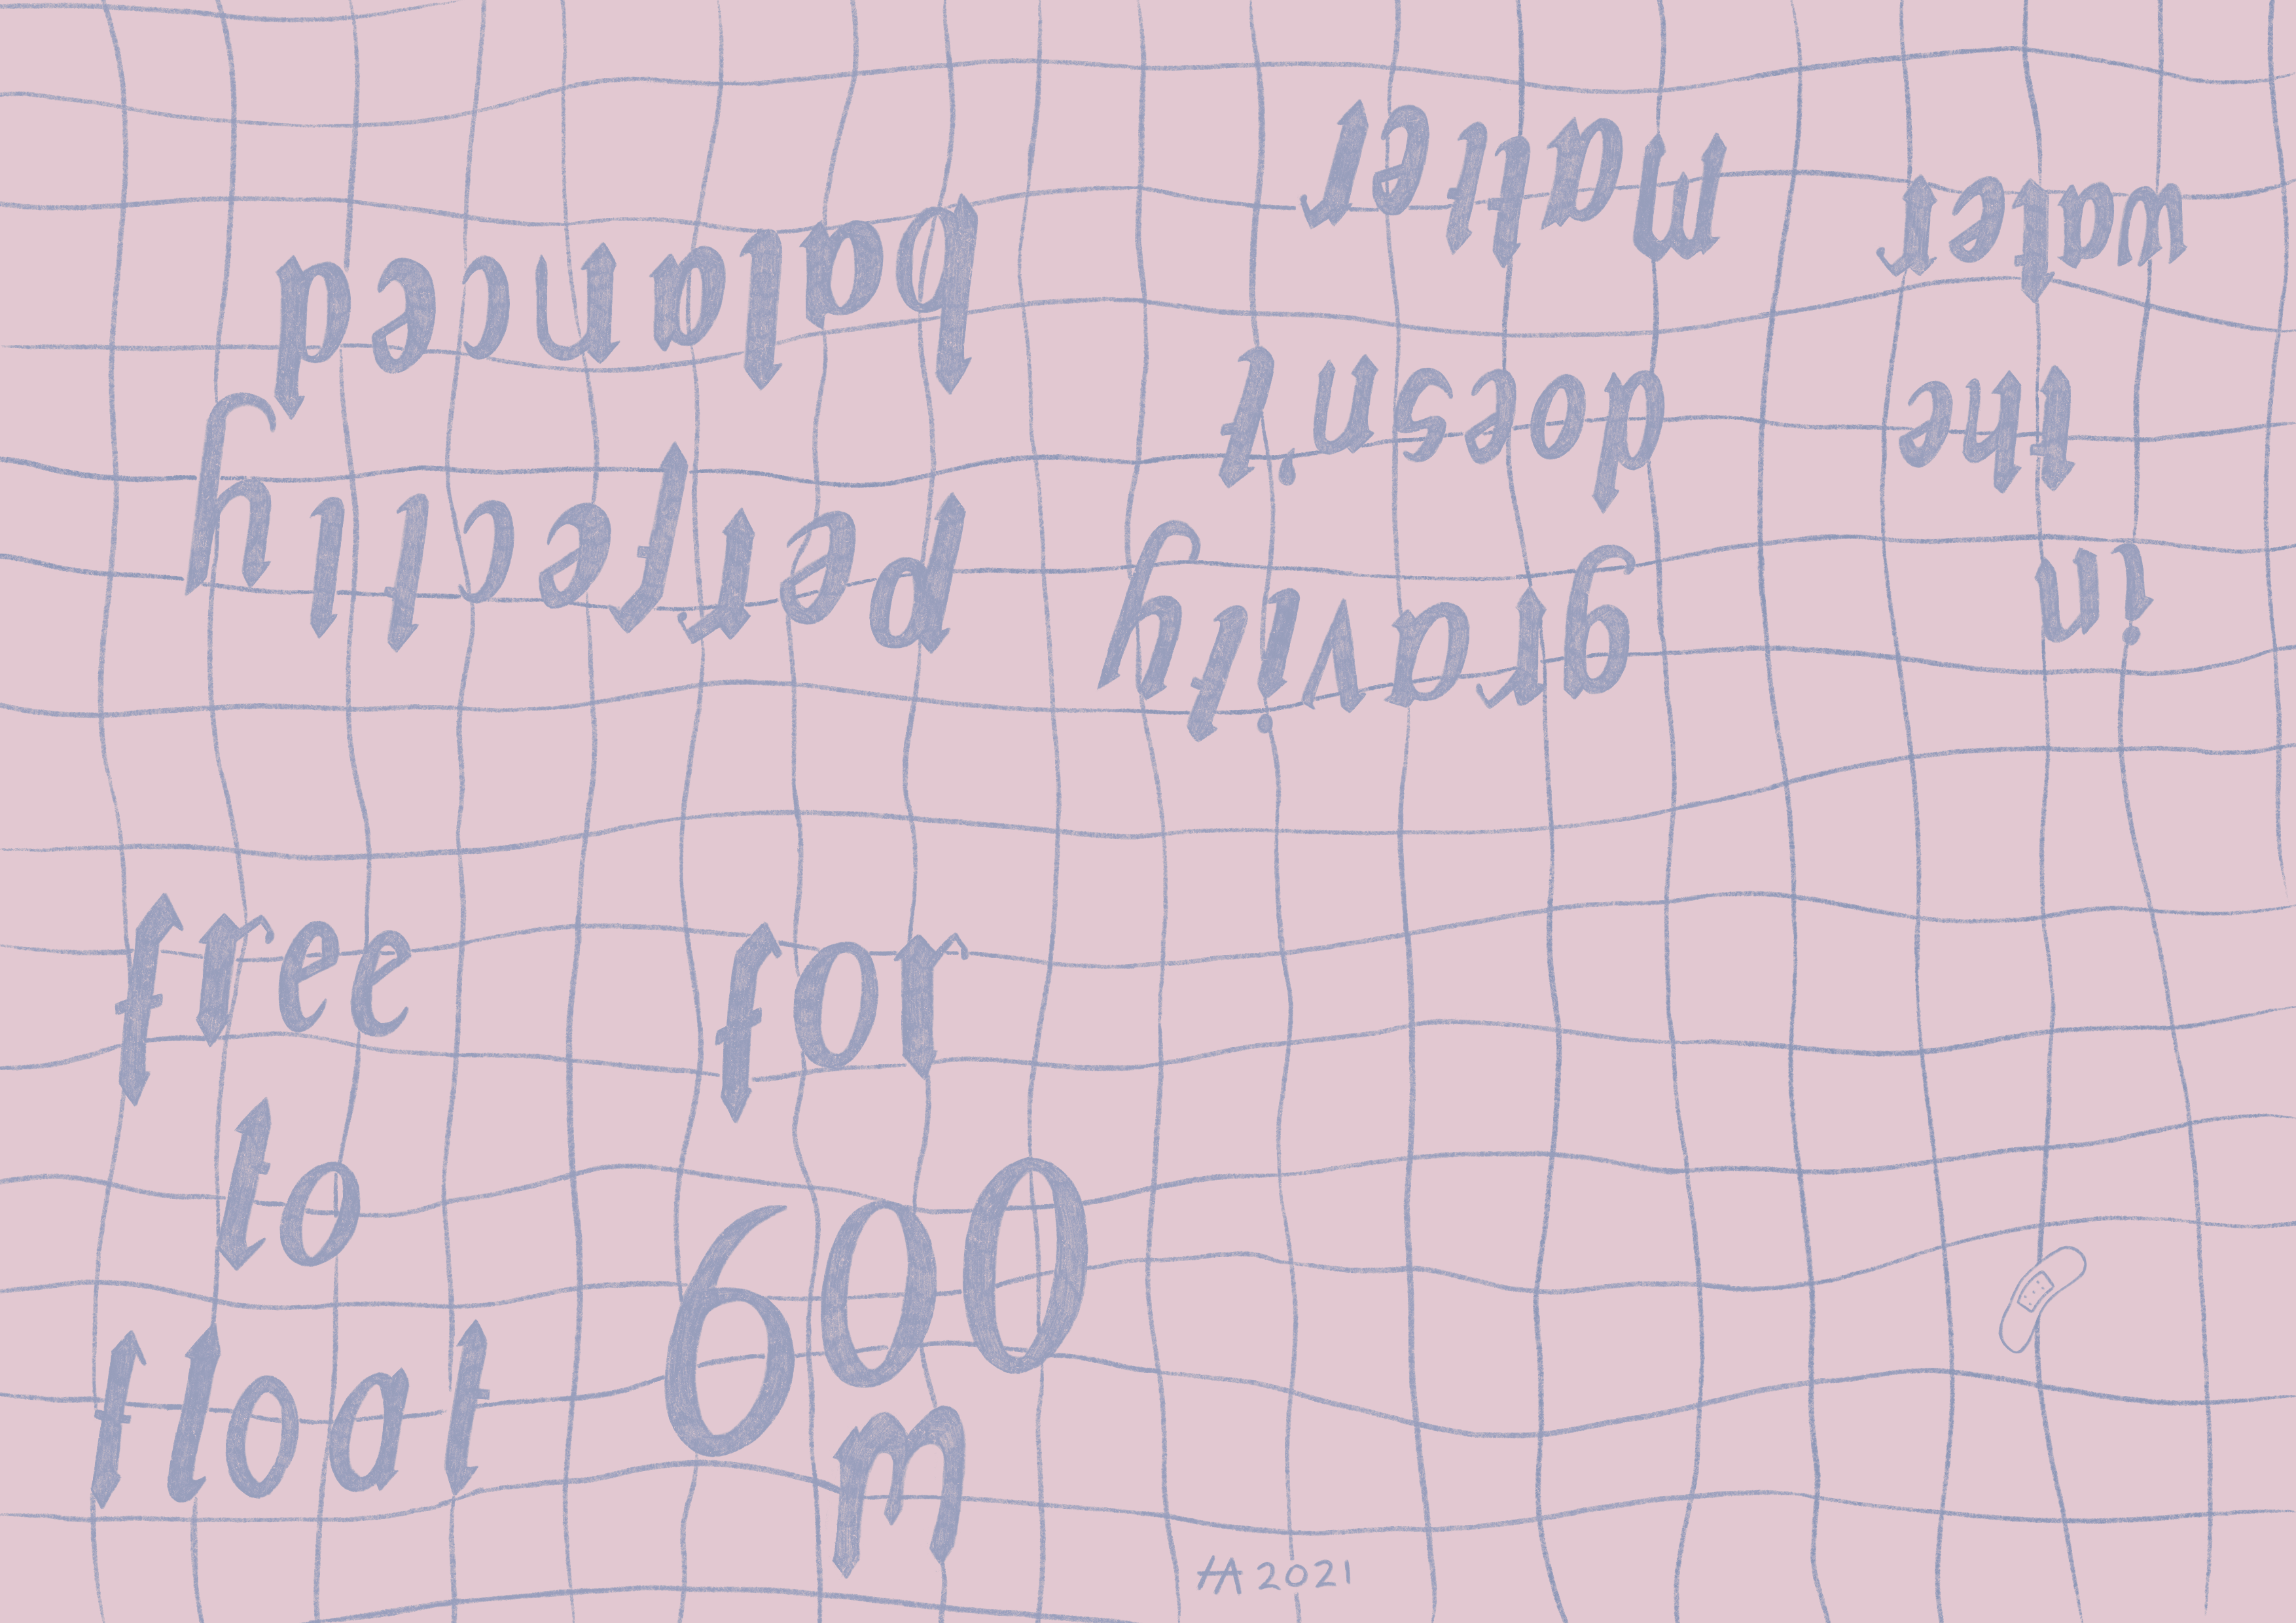 in
the
water
gravity
doesn't
matter
perfectly
balanced
free
to
float
for
600
m
HA 2021